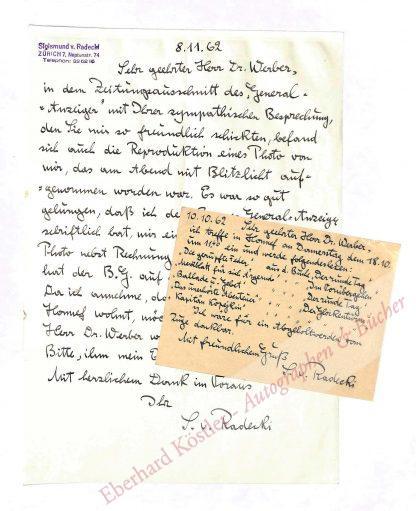 Sigismund v. Radecki
ZÜRICH 7, Neptunstr. 74
Telephon:
8.11.62
Sehr geehrter Herr Dr. Werber,
in dem Zeitungsausschnitt des „General-
-Anzeiger" mit Ihrer sympathischen Besprechung,
den Sie mir so freundlich schickten, befand
sich auch die Reproduktion eines Photo von
mir, das am Abend mit Blitzlicht auf-
=genommen worden war. Es war so gut
gelungen, daß ich de General-Anzeige
schriftlich bat, mir ein
Photo nebst Rechnung
hat der B.G. auf
Da ich annehme, da
Honnef wohnt, möc
Herr Dr. Werber wo
Bitte, ihm mein
Mit herzlichem Dank im Voraus
Ihr
S. v. Radecki
10.10.62 Sehr geehrter Herr Dr. Werber-
ich treffe in Honnef am Donnerstag den 18.10.
um ein und werde folgendes lesen:
aus d. Buch: Der runde Tag
Im Vorübergehen
"Ballade v. Gebet"
"Das unerhörte Abenteuer" Der runde Tag
Kapitän Kopejkin
Ich wäre für ein Abgeholtwerden vom
Zuge dankbar.
Mit freundlichem Gruß
S. v. Radecki
Eberhard Köstler - Autographen & Bücher